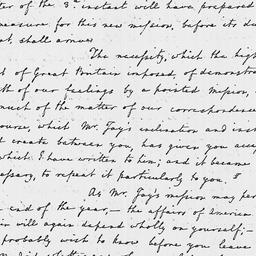 ter of the 3d instant will have prepared
measure, for this new mission, before its du
at, shall arrive
The necessity, which the high
t of Great Britain imposed, of demonstra
th of our feelings by a pointed Mission,
much of the matter of our correspondence
ourse, which Mr. Jay's inclination and inst
t create between you, has given you acc
which I have written to him; and it became
essary, to repeat it particularly to you.
As Mr. Jay's mission may per
end of the year,— the affairs of America
in will again depend wholly on yourself;—
probably wish to know before you leave